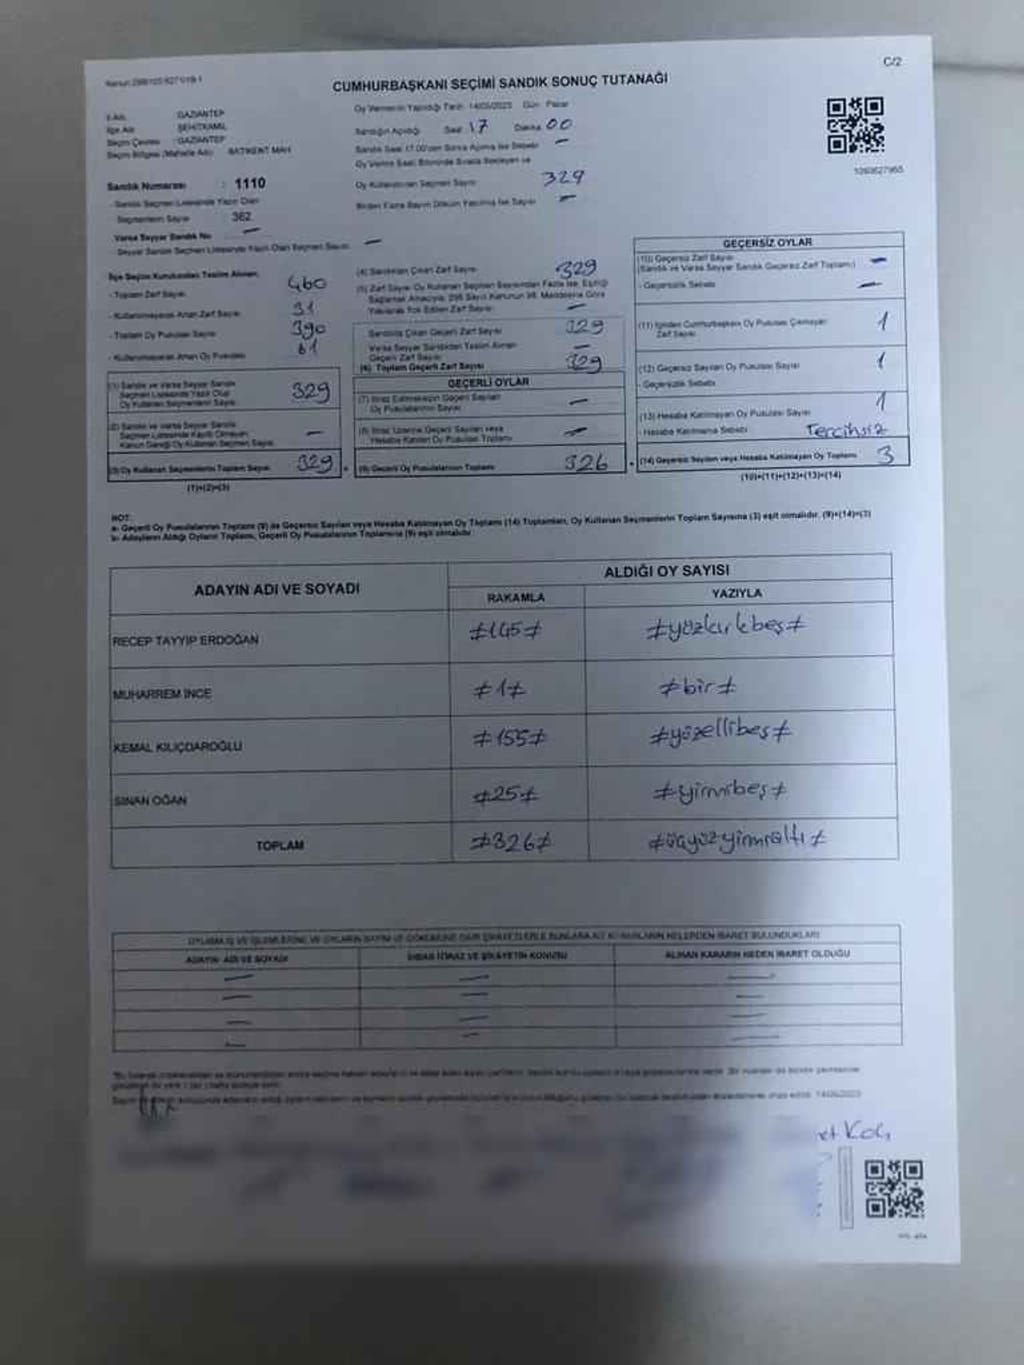 C/2
CUMHURBAŞKANI SEÇİMİ SANDIK SONUÇ TUTANAĞI
İli Adı GAZİANTEP
İlçe Adı ŞEHİTKAMİL
Seçim Çevresi : GAZİANTEP
Seçim Bölgesi (Mahalle Adı) BATIKENT MAH
Sandık Numarası : 1110
- Sandık Seçmen Listesinde Yazılı Olan
Seçmenlerin Sayısı 362
Varsa Seyyar Sandık No —
Seyyar Sandık Seçmen Listesinde Yazılı Olan Seçmen Sayısı —
Oy Vermenin Yapıldığı Tarih 14/05/2023 Gün Pazar
Sandığın Açıldığı Saat 17 Dakika 00
Sandık Saat 17.00'den Sonra Açılmış İse Sebebi —
Oy Verme Saati Bitiminde Sırada Bekleyen ve
Oy Kullandırılan Seçmen Sayısı 329
Birden Fazla Sayım Döküm Yapılmış İse Sayısı —
İlçe Seçim Kurulundan Teslim Alınan;
- Toplam Zarf Sayısı 460
- Kullanılmayarak Artan Zarf Sayısı 31
- Toplam Oy Pusulası Sayısı 390
- Kullanılmayarak Artan Oy Pusulası 61
(1) Sandık ve Varsa Seyyar Sandık
Seçmen Listesinde Yazılı Olup
Oy Kullanan Seçmenlerin Sayısı 329
(2) Sandık ve Varsa Seyyar Sandık
Seçmen Listesinde Kayıtlı Olmayan
Kanun Gereği Oy Kullanan Seçmen Sayısı —
(3) Oy Kullanan Seçmenlerin Toplam Sayısı 329
(1)+(2)=(3)
(4) Sandıktan Çıkan Zarf Sayısı 329
(5) Zarf Sayısı Oy Kullanan Seçmen Sayısından Fazla İse, Eşitliği
Sağlamak Amacıyla, 298 Sayılı Kanunun 98. Maddesine Göre
Yakılarak Yok Edilen Zarf Sayısı —
Sandıkta Çıkan Geçerli Zarf Sayısı 329
Varsa Seyyar Sandıktan Teslim Alınan
Geçerli Zarf Sayısı —
(6) Toplam Geçerli Zarf Sayısı 329
GEÇERLİ OYLAR
(7) İtiraz Edilmeksizin Geçerli Sayılan
Oy Pusulalarının Sayısı —
(8) İtiraz Üzerine Geçerli Sayılan veya
Hesaba Katılan Oy Pusulası Toplamı —
(9) Geçerli Oy Pusulalarının Toplamı 326
GEÇERSİZ OYLAR
(10) Geçersiz Zarf Sayısı
(Sandık ve Varsa Seyyar Sandık Geçersiz Zarf Toplamı) —
- Geçersizlik Sebebi —
(11) İçinden Cumhurbaşkanı Oy Pusulası Çıkmayan
Zarf Sayısı 1
(12) Geçersiz Sayılan Oy Pusulası Sayısı 1
- Geçersizlik Sebebi
(13) Hesaba Katılmayan Oy Pusulası Sayısı 1
- Hesaba Katılmama Sebebi Tercihsiz
(14) Geçersiz Sayılan veya Hesaba Katılmayan Oy Toplamı 3
(10)+(11)+(12)+(13)=(14)
NOT:
a- Geçerli Oy Pusulalarının Toplamı (9) ile Geçersiz Sayılan veya Hesaba Katılmayan Oy Toplamı (14) Toplamları, Oy Kullanan Seçmenlerin Toplam Sayısına (3) eşit olmalıdır. (9)+(14)=(3)
b- Adayların Aldığı Oyların Toplamı, Geçerli Oy Pusulalarının Toplamına (9) eşit olmalıdır.
ADAYIN ADI VE SOYADI ALDIĞI OY SAYISI
RAKAMLA YAZIYLA
RECEP TAYYİP ERDOĞAN ≠145≠ ≠yüzkırkbeş≠
MUHARREM İNCE ≠1≠ ≠bir≠
KEMAL KILIÇDAROĞLU ≠155≠ ≠yüzellibeş≠
SİNAN OĞAN ≠25≠ ≠yirmibeş≠
TOPLAM ≠326≠ ≠üçyüzyirmialtı≠
ADAYIN ADI VE SOYADI İHBAR İTİRAZ VE ŞİKAYETİN KONUSU ALINAN KARARIN NEDEN İBARET OLDUĞU
— — —
— — —
— — —
— — —
et Koç